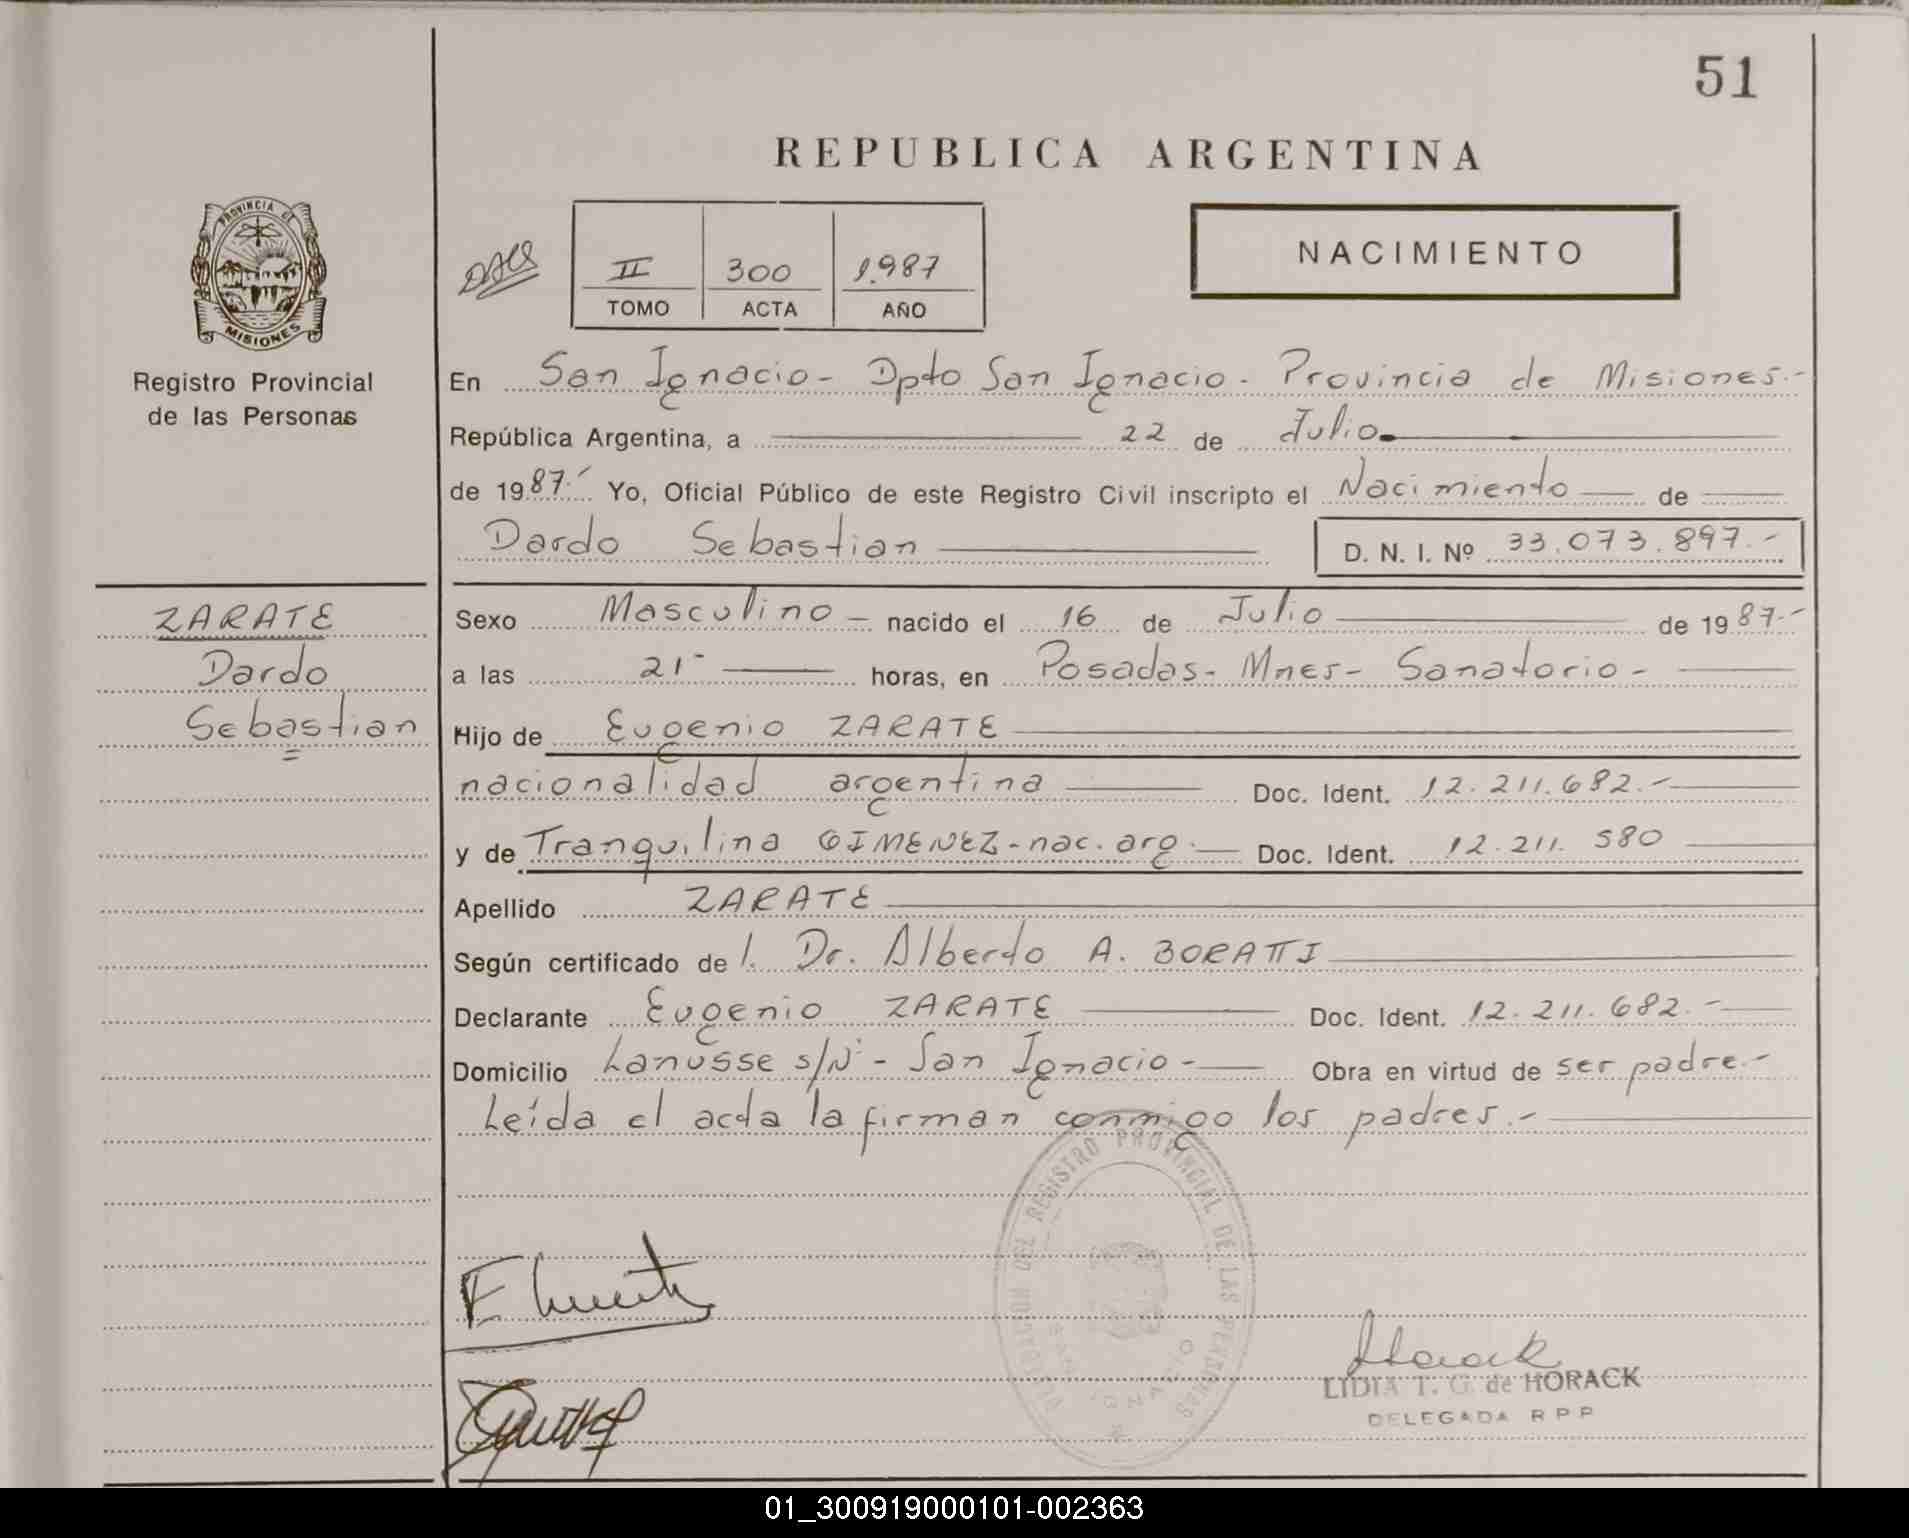 51
REPUBLICA ARGENTINA
PROVINCIA DE
MISIONES
Registro Provincial
de las Personas
II 300 1.987
TOMO ACTA AÑO
NACIMIENTO
En San Ignacio - Dpto San Ignacio - Provincia de Misiones.-
República Argentina, a 22 de Julio
de 1987.- Yo, Oficial Público de este Registro Civil inscripto el Nacimiento de
Dardo Sebastian D. N. I. Nº 33.073.897.-
ZARATE
Dardo
Sebastian
Sexo Masculino - nacido el 16 de Julio de 1987.-
a las 21 horas, en Posadas - Mnes - Sanatorio -
Hijo de Eugenio ZARATE
nacionalidad argentina Doc. Ident. 12.211.682.-
y de Tranquilina GIMENEZ - nac. arg. Doc. Ident. 12.211.580
Apellido ZARATE
Según certificado de l. Dr. Alberto A. BORATTI
Declarante Eugenio ZARATE Doc. Ident. 12.211.682.-
Domicilio Lanusse s/Nº - San Ignacio - Obra en virtud de ser padre.-
Leída el acta la firman conmigo los padres.-
DEL REGISTRO PROVINCIAL DE LAS PERSONAS
SAN IGNACIO
LIDIA T. G. de HORACK
DELEGADA R P P
01_300919000101-002363